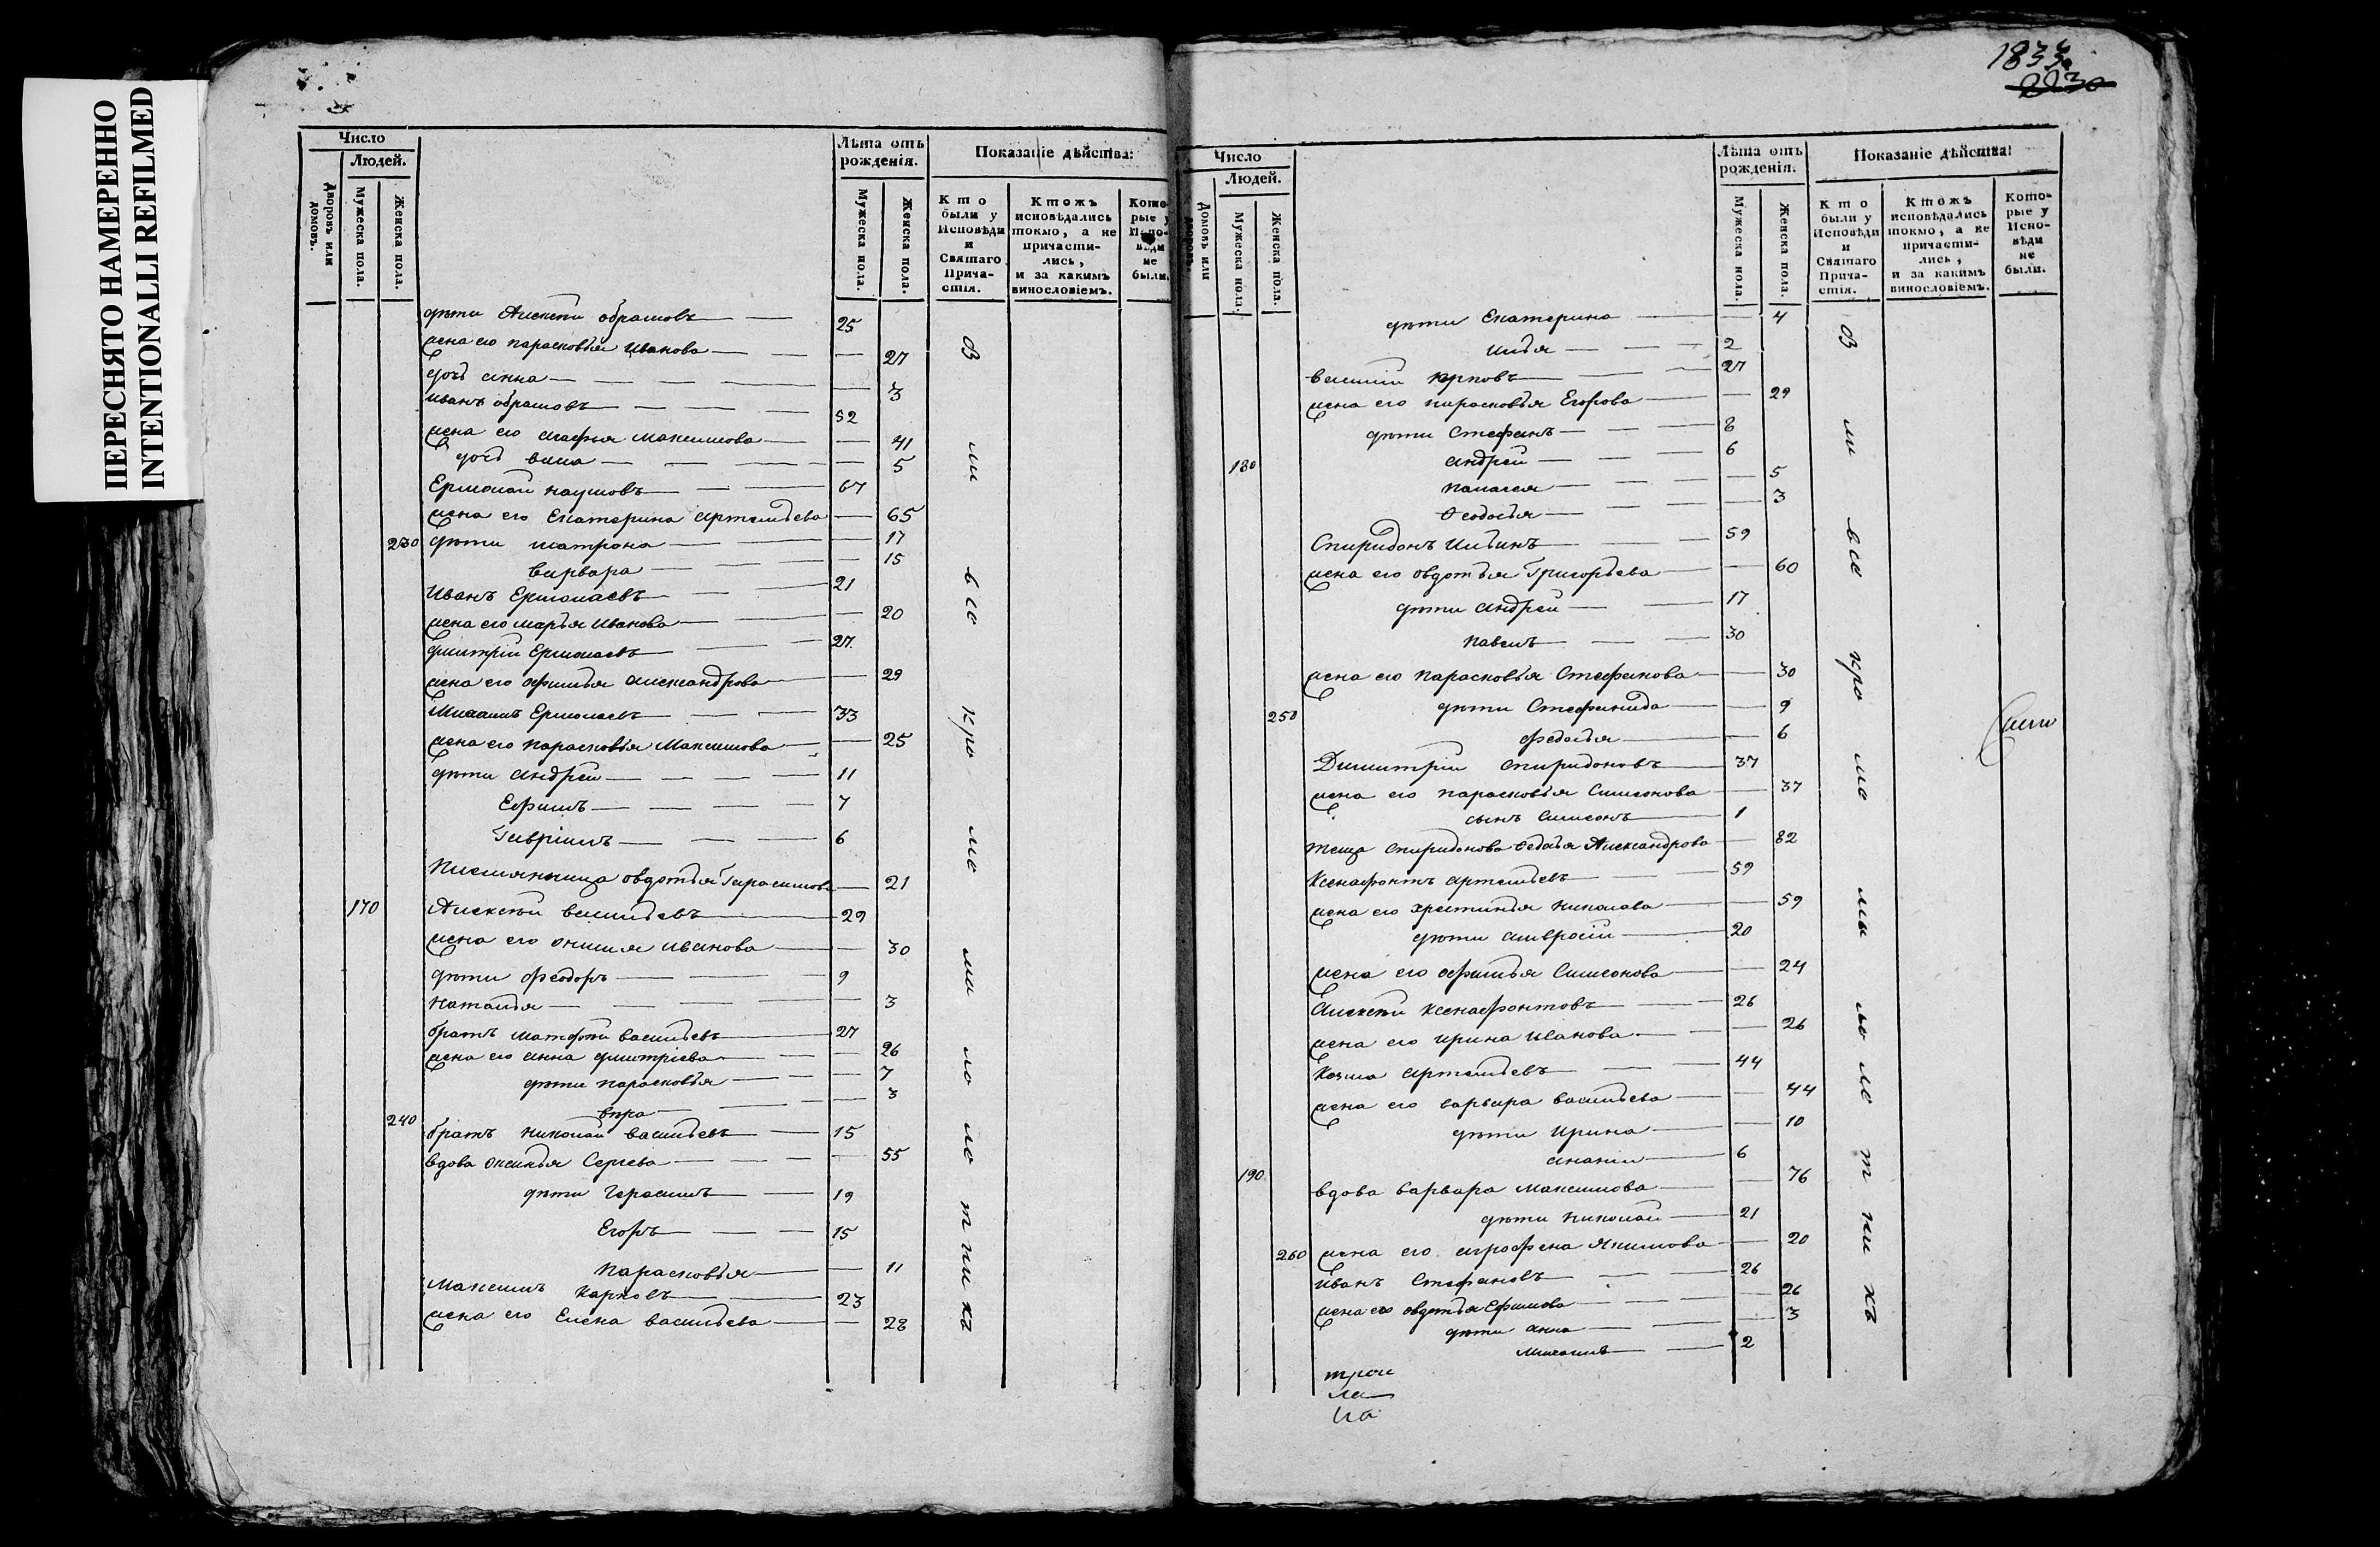 ПЕРЕСНЯТО НАМЕРЕННО
INTENTIONALLI REFILMED
Число
Людей.
Дворовъ или домовъ.
Мужеска пола.
Женска пола.
Лѣта отъ рожденія.
Мужеска пола.
Женска пола.
Показаніе дѣйства:
Кто были у Исповѣди и Святаго Причастія.
Ктожъ исповѣдались токмо, а не причастились, и за какимъ винословіемъ.
Которые у Исповѣди не были.
дѣти Алексѣй обрамовъ 25
жена его парасковья Иванова 27
дочь анна 3
иванъ обрамовъ 52
жена его агафья максимова 41
дочь 5
Ермолай наумовъ 67
жена его Екатерина артемьева 65
230 дѣти матрона 17
варвара 15
Иванъ Ермолаевъ 21
жена его марья Иванова 20
дмитрій Ермолаевъ 27
жена его афимья александрова 29
Михаилъ Ермолаевъ 33
жена его парасковья Максимова 25
дѣти андрей 11
Ефимъ 7
Гаврiилъ 6
овдотья Гарасимова 21
170 Алексѣй васильевъ 29
жена его Иванова 30
дѣти феодоръ 9
наталья 3
братъ матфѣй васильевъ 27
жена его анна дмитріева 26
дѣти парасковья 7
вѣра 3
240
братъ николай васильевъ 15
вдова оксинья Сергева 55
дѣти Герасимъ 19
Егоръ 15
парасковья 11
Максимъ карповъ 23
жена его Елена васильева 28
1833
Число
Людей.
Домовъ или дворовъ.
Мужеска пола.
Женска пола.
Лѣта отъ рожденія.
Мужеска пола.
Женска пола.
Показаніе дѣйства:
Кто были у Исповѣди и Святаго Причастія.
Ктожъ исповѣдались токмо, а не причастились, и за какимъ винословіемъ.
Которые у Исповѣди не были.
дѣти Екатерина 4
илья 2
василій карповъ 27
жена его парасковья Егорова 29
дѣти Стефанъ 8
180 андрей 6
палагея 5
Ѳеодосья 3
Спиридонъ Ильинъ 59
жена его овдотья Григорьева 60
дѣти андрей 17
павелъ 30
жена его парасковья Стефанова 30
250 дѣти Стефанида 9
федосья 6
Димитрій спиридоновъ 37
жена его парасковья Симеонова 37
сынъ Симеонъ 1
теща спиридонова Ѳедосья Александрова 82
Ксенафонтъ артемьевъ 59
жена его христинья николаева 59
дѣти амвросій 20
жена его афимья Симеонова 24
Алексѣй ксенафонтовъ 26
жена его ирина иванова 26
Козма артемьевъ 44
жена его варвара васильева 44
дѣти Ирина 10
ананій 6
190
вдова варвара максимова 76
дѣти николай 21
260 жена его агрофена якимова 20
Иванъ Стефановъ 26
жена его овдотья Ефимова 26
дѣти анна 3
михаилъ 2